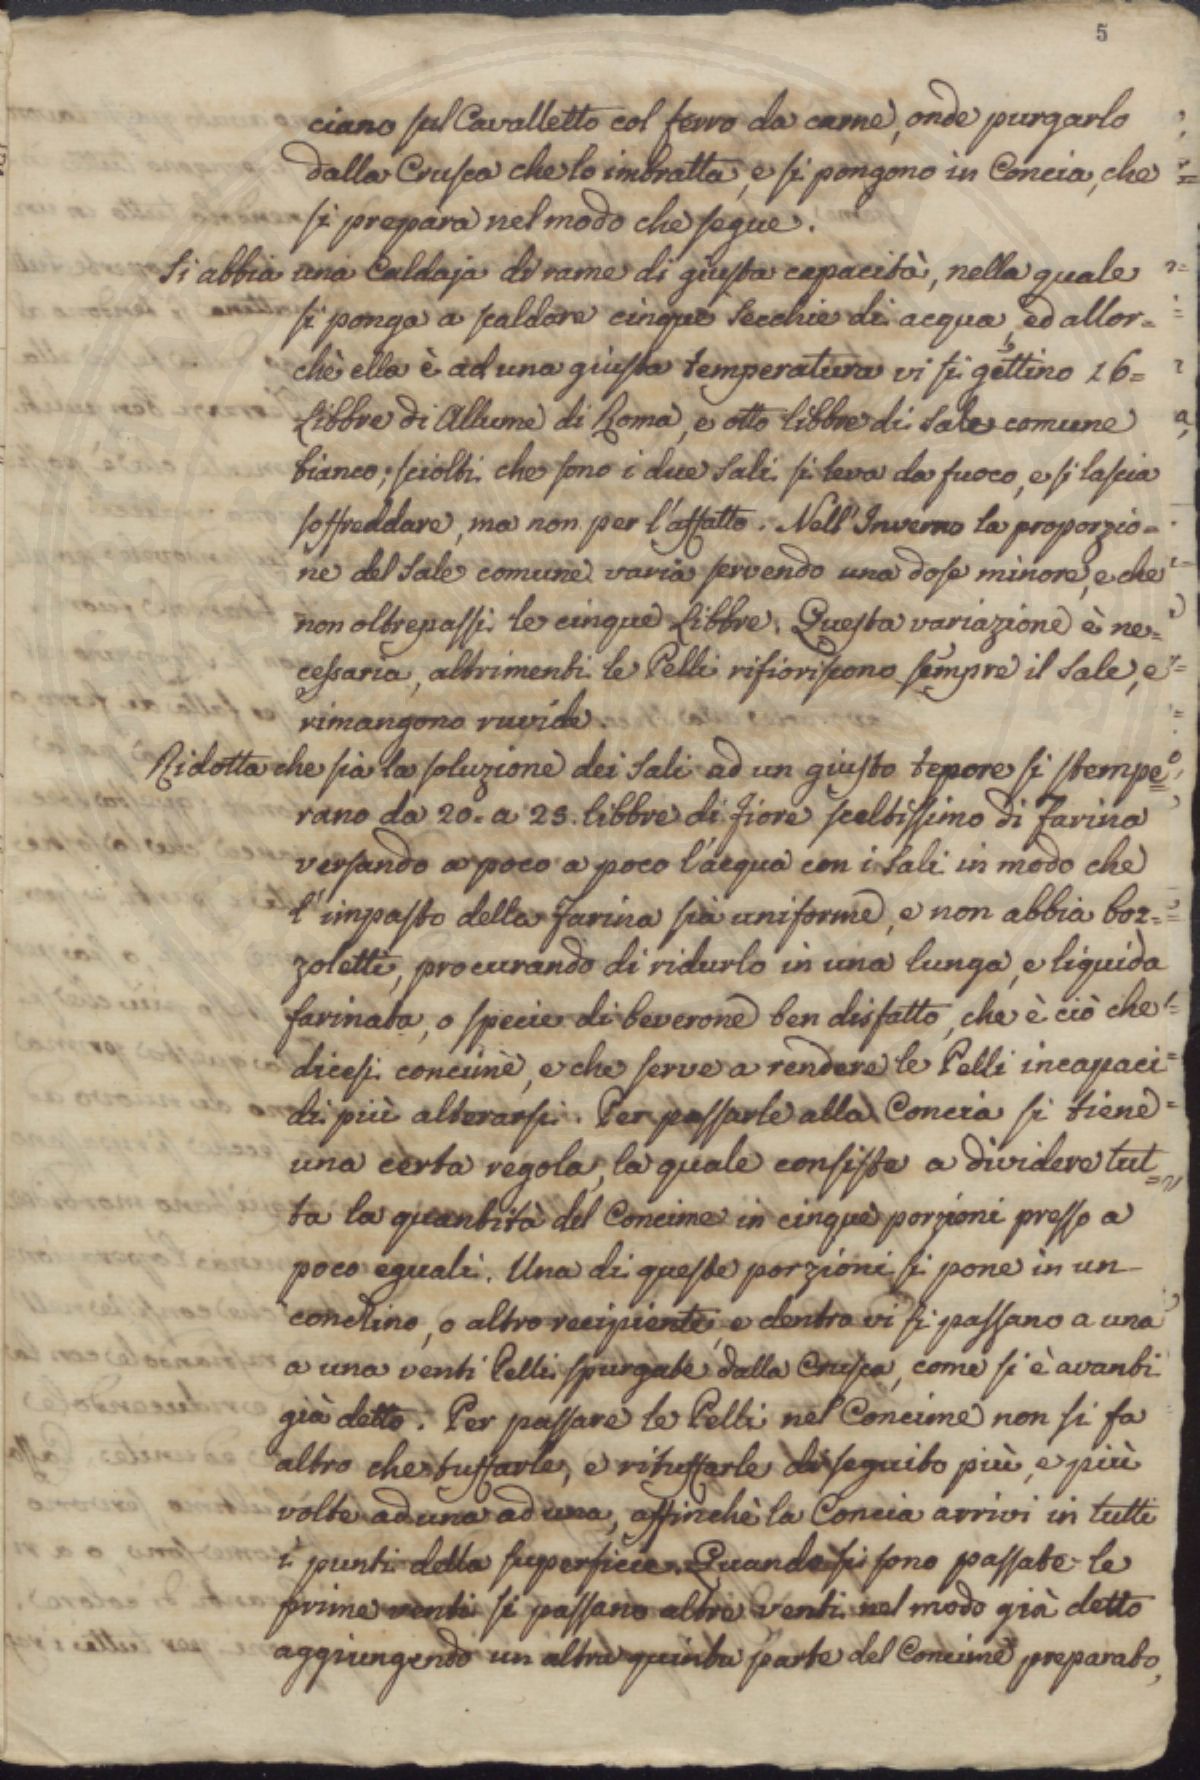 5
ciano sul Cavalletto col ferro da carne, onde purgarlo
dalla Crusca che lo imbratta, e si pongono in Concia, che
si prepara nel modo che segue.
Si abbia una Caldaja di rame di giusta capacità, nella quale
si ponga a scaldare cinque Secchie di acqua, ed allor=
chè ella è ad una giusta temperatura vi si gettino 16=
Libbre di Allume di Roma, e otto libbre di Sale comune
bianco; sciolti che sono i due Sali si leva da fuoco, e si lascia
soffreddare, ma non per l'affatto. Nell'Inverno la proporzio=
ne del Sale comune varia servendo una dose minore, e che
non oltrepassi le cinque Libbre. Questa variazione è ne=
cessaria, altrimenti le Pelli rifioriscono sempre il Sale, e
rimangono ruvide.
Ridotta che sia la soluzione dei Sali ad un giusto tepore si stempe=
rano da 20. a 25. libbre di Fiore sceltissimo di Farina
versando a poco a poco l'acqua con i Sali in modo che
l'impasto della Farina sia uniforme, e non abbia boz=
zoletti, procurando di ridurlo in una lunga, e liquida
farinata, o specie di beverone ben disfatto, che è ciò che
dicesi concime, e che serve a rendere le Pelli incapaci
di più alterarsi. Per passarle alla Concia si tiene
una certa regola, la quale consiste a dividere tut=
ta la quantità del Concime in cinque porzioni presso a
poco eguali. Una di queste porzioni si pone in un
conchino, o altro recipiente, e dentro vi si passano a una
a una venti Pelli spurgate dalla Crusca, come si è avanti
già detto. Per passare le Pelli nel Concime non si fa
altro che tuffarle, e rituffarle di seguito più, e più
volte ad una ad una, affinchè la Concia arrivi in tutti
i punti della superficie. Quando si sono passate le
prime venti si passano altre venti nel modo già detto
aggiungendo un altra quinta parte del Concime preparato,